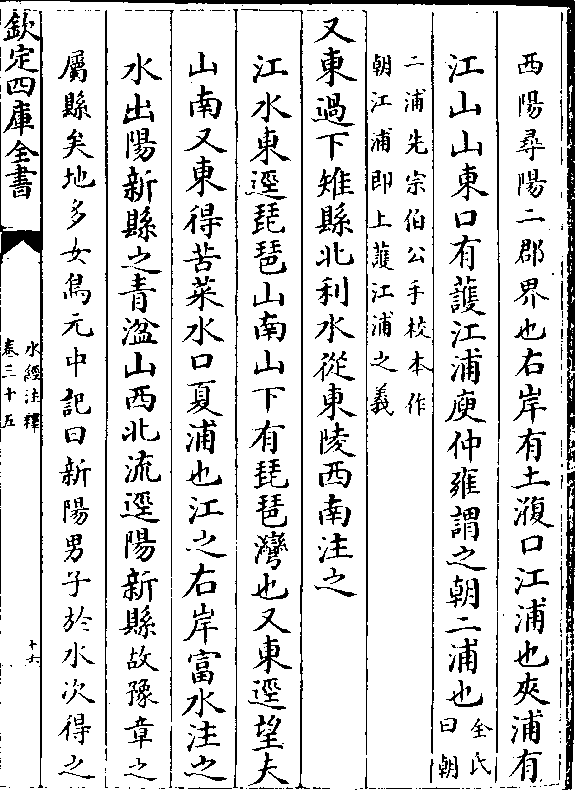 西陽尋陽二郡界也右岸有土澓口江浦也夾浦有
江山山東口有護江浦庾仲雍謂之朝二浦也全氏曰朝
二浦先宗伯公手校本作朝江浦即上護江浦之義
又東過下雉縣北利水從東陵西南注之
江水東逕琵琶山南山下有琵琶灣也又東逕望夫
山南又東得苦菜水口夏浦也江之右岸富水注之
水出陽新縣之青湓山西北流逕陽新縣故豫章之
屬縣矣地多女鳥元中記曰新陽男子於水次得之
欽定四庫全書
水經注釋
卷三十五
十六